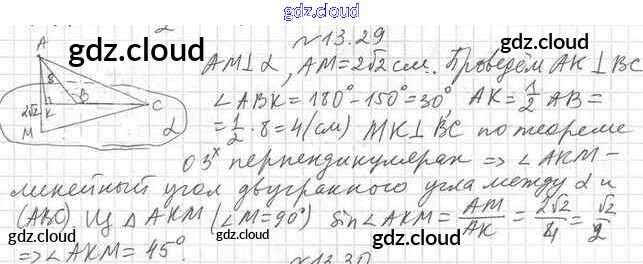 gdz.cloud
№13.29
A
8
B
C
K
2√2
M
α
gdz.cloud
gdz.cloud
AM⊥α, AM=2√2 см. Проведём AK⊥BC
∠ABK=180°-150°=30°, AK=1/2 AB=
=1/2·8=4(см) MK⊥BC по теореме
о 3ˣ перпендикулярах => ∠AKM-
линейный угол двугранного угла между α и
(ABC) Из ΔAKM (∠M=90°) sin∠AKM=AM/AK=2√2/4=√2/2
=>∠AKM=45°.
gdz.cloud
gdz.cloud
gdz.cloud
№13.30